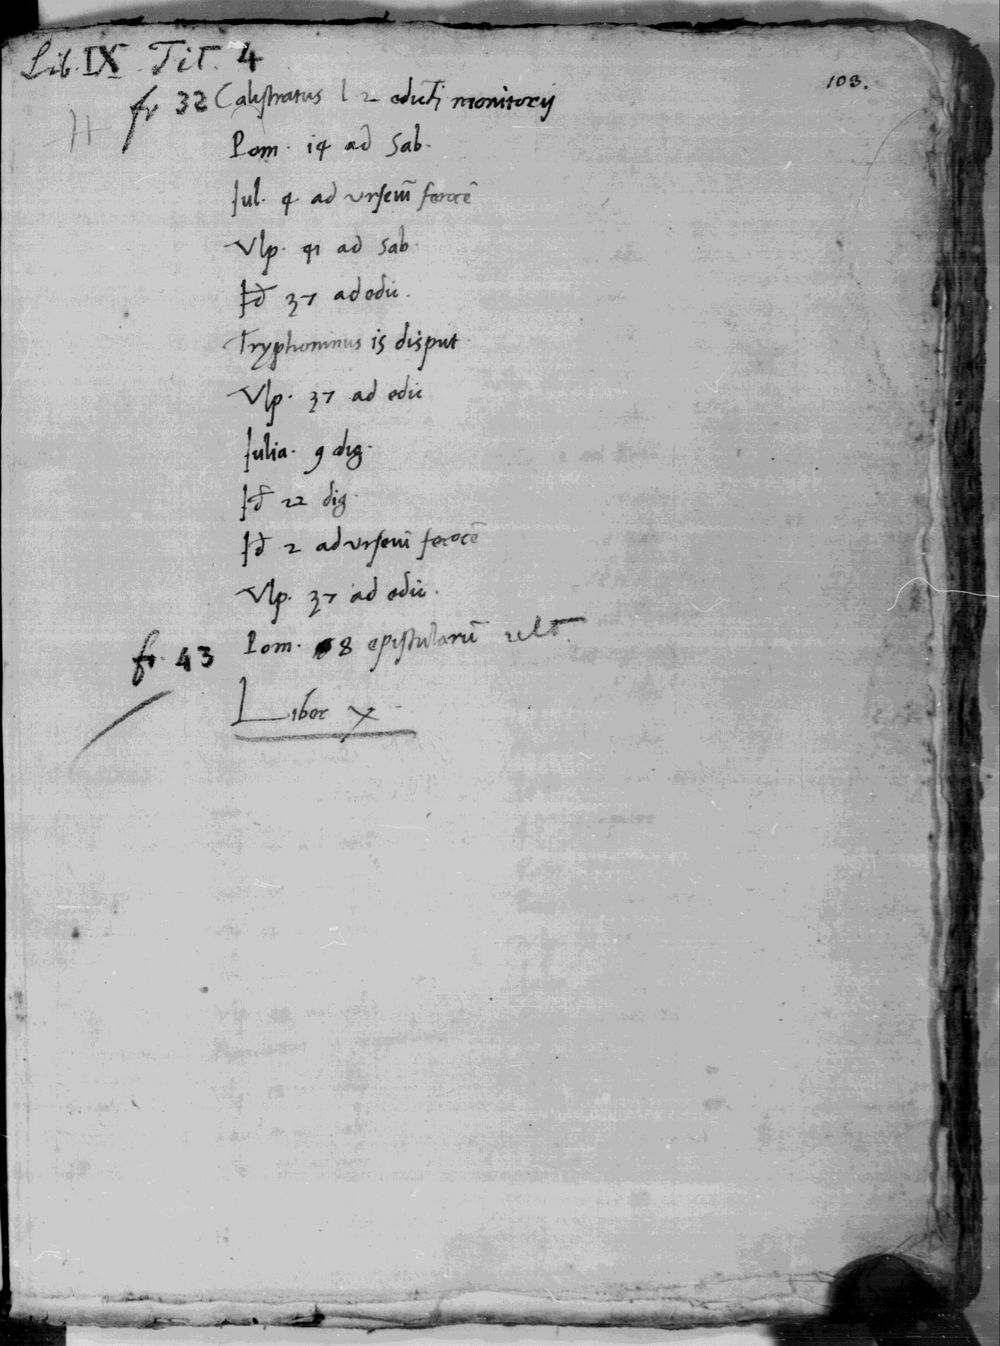 Lib. IX Tit. 4
103.
fr 32 Calistratus l 2 edicti monitorij
Pom. 14 ad Sab.
Iul. 4 ad Vrseiũ ferocẽ
Vlp. 41 ad Sab.
Id 37 ad edic.
Tryphoninus 15 disput
Vlp. 37 ad edic
Iulia. 9 dig.
Id 22 dig
Id 2 ad Vrseiũ ferocẽ
Vlp. 37 ad edic.
fr. 43 Pom. 8 epistularũ ult.
Liber X